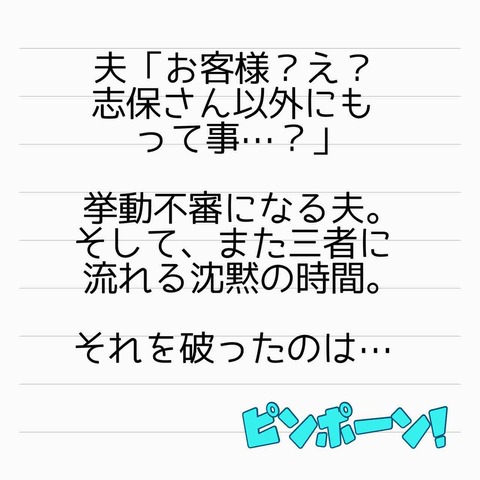 夫「お客様？え？
志保さん以外にも
って事…？」
挙動不審になる夫。
そして、また三者に
流れる沈黙の時間。
それを破ったのは…
ピンポーン!